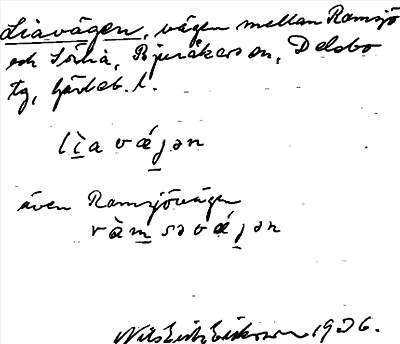 Liavägen, vägen mellan Ramsjö
och Sörlia, Bjuråkers sn, Delsbo
tg, Gävleb. l.
lìa vǽjən
även Ramsjövägen
ràmsəvǽjən
Nils Erik Eriksson 1936.